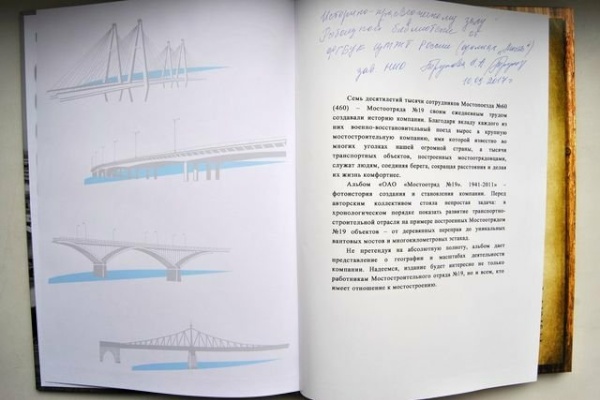 Историко-краеведческому залу
библиотеки
России
зав
Семь десятилетий тысячи сотрудников Мостопоезда №60
(460) – Мостоотряда №19 своим ежедневным трудом
создавали историю компании. Благодаря вкладу каждого из
них военно-восстановительный поезд вырос в крупную
мостостроительную компанию, имя которой известно во
многих уголках нашей огромной страны, а тысячи
транспортных объектов, построенных мостоотрядцами,
служат людям, соединяя берега, сокращая расстояния и делая
их жизнь комфортнее.
Альбом «ОАО «Мостоотряд №19». 1941-2011» –
фотоистория создания и становления компании. Перед
авторским коллективом стояла непростая задача: в
хронологическом порядке показать развитие транспортно-
строительной отрасли на примере построенных Мостоотрядом
№19 объектов – от деревянных переправ до уникальных
вантовых мостов и многокилометровых эстакад.
Не претендуя на абсолютную полноту, альбом дает
представление о географии и масштабах деятельности
компании. Надеемся, издание будет интересно не только
работникам Мостостроительного отряда №19, но и всем, кто
имеет отношение к мостостроению.